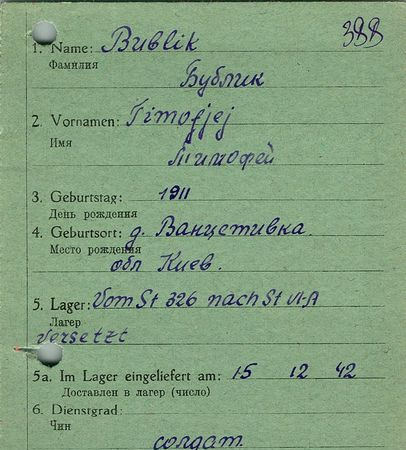 388
1. Name: Bublik
Фамилия
Бублик
2. Vornamen: Timofjej
Имя
Тимофей
3. Geburtstag: 1911
День рождения
4. Geburtsort: д. Ванцетивка
Место рождения
обл Киев.
5. Lager: Vom St 326 nach St VI-A
Лагер
versetzt
5a. Im Lager eingeliefert am: 15 12 42
Доставлен в лагер (число)
6. Dienstgrad:
Чин
солдат